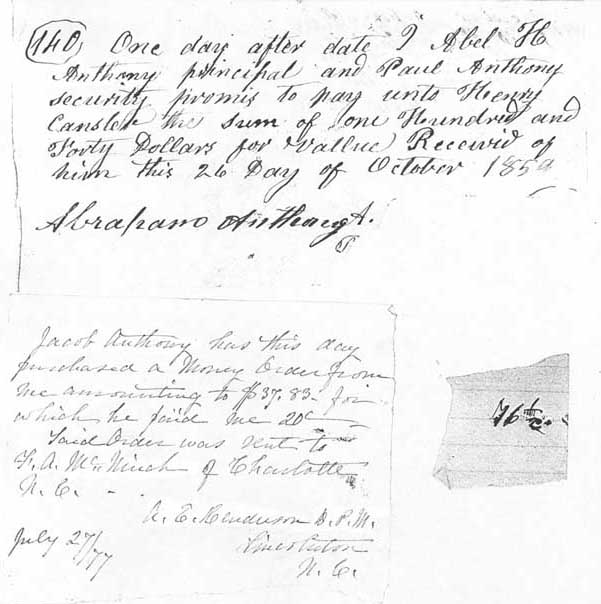 140, One day after date I Abel H
Anthony principal and Paul Anthony
security promis to pay unto Henry
Cansler the sum of one Hundrid and
Forty Dollars for vallue Receivid of
him this 26 Day of October 185
Abraham Anthony
Jacob Anthony has this day
purchased a Money Order from
me amounting to $37.83 for
which he paid me 20c
Said Order was sent to
F. A. McNinch of Charlotte
N. C.
A. E. Henderson D. P. M.
July 27/77
Lincolnton
N. C.
76